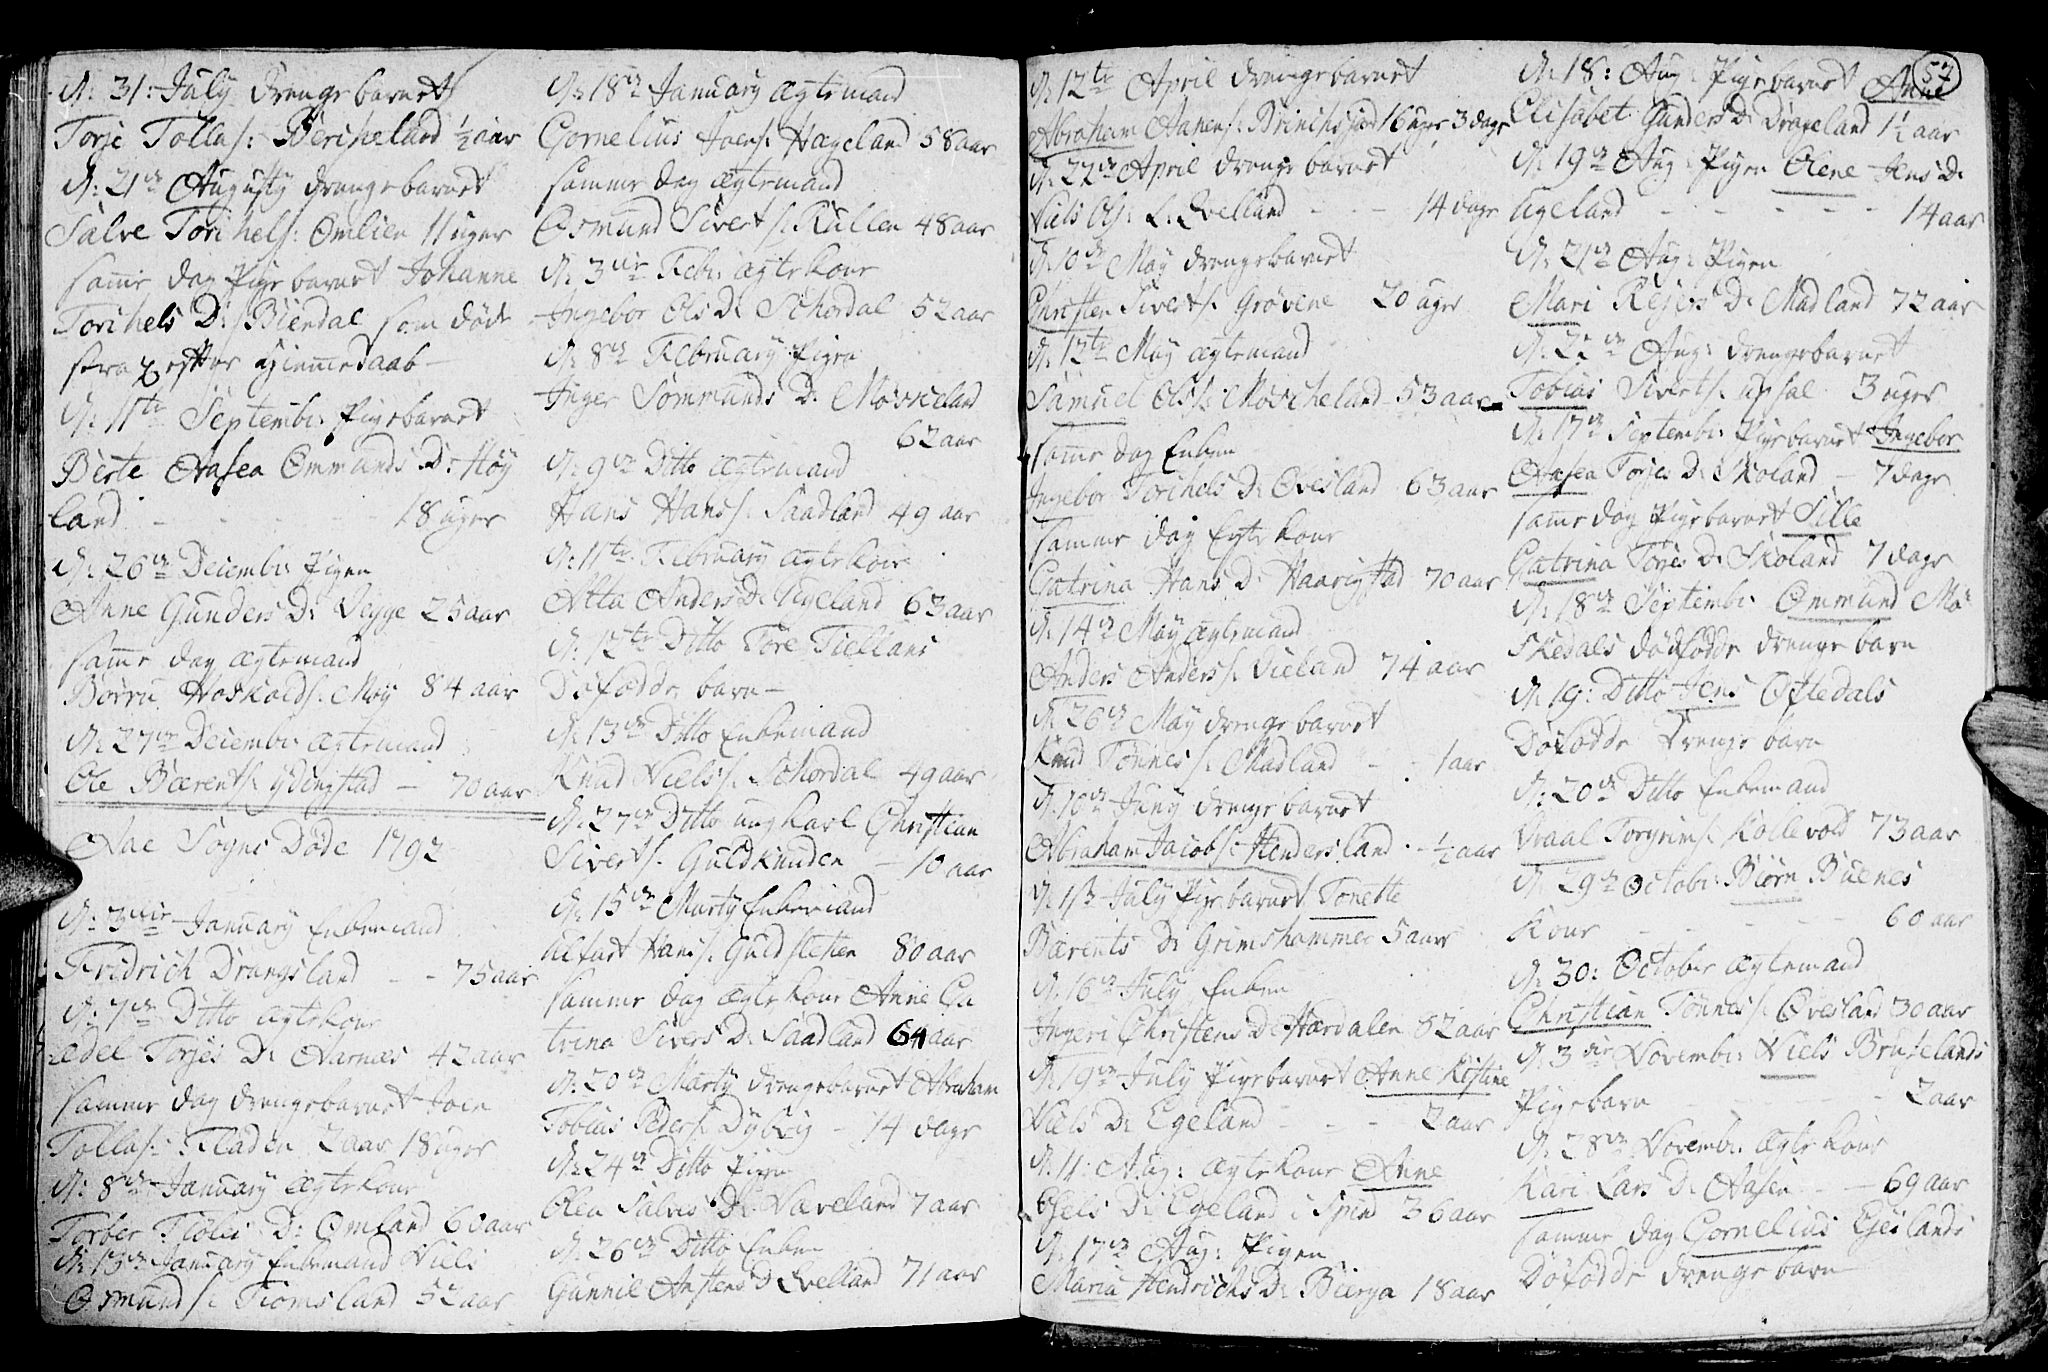 D: 31: July Drengebarnet
Torje Tollas: Berisheland ½ aar
D: 21de Augusty Drengebarnet
Salve Torichels: Omlien 11 uger
samme dag Pigebarnet Johanne
Torichels D: Birndal som døde
strax efter hiemmedaab
D: 11te Septembr: Pigebarnet
Berte Aasea Ommunds D: Høy
land - - - 18 uger
D: 26de Decembr: Pigen
Anne Gunders D: Vegge 25 aar
samme dag ægtemand
Børru Hoskolds: Møy 84 aar
D: 27de Decembr: ægtemand
Ole Bærents: Ydingstad - 70 aar
Aae Sogns Døde 1792
D: 3die January Enkemand
Fridrich Drangsland - - 75 aar
D: 7de Ditto ægtekone
Edel Torjes D: Aarnæs 42 aar
samme dag drengebarnet Joen
Tollas: Fladen 2 aar 18 uger
D: 8de January ægtekone
Torber Tiølis D: Omland 60 aar
D: 13de January Enkemand Niels
Osmunds: Tiomsland 52 aar
D: 18de January ægtemand
Cornelius Joens: Hageland 58 aar
samme dag ægtemand
Osmund Siverts: Kullen 48 aar
D: 3die Febr: ægtekone
Ingebor Ols D: Schordal 52 aar
D: 8de February Pigen
Inger Sommunds D: Møskeland
62 aar
D: 9de Ditto ægtemand
Hans Hans: Saadland 49 aar
D: 11te February ægtekone
Atta Anders D: Ugeland 63 aar
D: 12te Ditto Tore Tiellans
Døfødde barn
D: 13de Ditto Enkemand
Knud Niels: Schordal 49 aar
D: 27de Ditto ungkarl Christian
Siverts: Guldknuden - 10 aar
D: 15de Marty Enkemand
Hans: Guldsteten 80 aar
samme dag ægtekone Anne Ca
trina Sivers D: Saadland 64 aar
D: 20de Marty drengebarnet Abraham
Tobias Peders: Dybvig - 14 dage
D: 24de Ditto Pigen
Olea Salves D: Væreland 7 aar
D: 26de Ditto Enken
Gunnil Anstens D: Qvelland 71 aar
57
D: 12te April drengebarnet
Abraham Aanens: 16 uger 3 dage
D: 22de April drengebarnet
Niels Ols: L. Qvelland - - - 14 dage
D: 10de May drengebarnet
Christen Siverts: Grøvene 20 uger
D: 12te May ægtemand
Samuel Ols: Møscheland 53 aar
samme dag Enken
Ingebor Torichels D: Øvesland 63 aar
samme dag Egtekone
Catrina Hans D: Haarigstad 70 aar
D: 14de May ægtemand
Anders Anders: Vieland 74 aar
D: 26de May drengebarnet
Knud Tønnes: Madland - - 1 aar
D: 10de Juny drengebarnet
Abraham Jacobs: Hendersland - ½ aar
D: 13 July Pigebarnet Tonette
Bærents D: Grimshammer 5 aar
D: 16de July Enken
Ingeri Christens D: Hærdalen 82 aar
D: 19de July Pigebarnet Anne Kistine
Niels D: Egeland - - - 2 aar
D: 11: Aug: ægtekone Anne
D: Egeland i Spind 36 aar
D: 17de Aug: Pigen
Maria Hendrichs D: Bierga 18 aar
D: 18: Aug: Pigebarnet Anne
Elisabet Gunders D: Drageland 1½ aar
D: 19de Aug: Pigen Olene Jens D:
Egeland - - - - - 14 aar
D: 21de Aug: Pigen
Mari Rejers D: Madland 72 aar
D: 22de Aug: drengebarnet
Tobias Siverts: Upsal 3 uger
D: 17de Septembr: Pigebarnet Ingebor
Aasea Torjes D: Skoland - 7 dage
samme dag Pigebarnet Sille
Catrina Torjes D: Skoland 7 dage
D: 18de Septembr: Ommund Mo-
skedals dødfødde drengebarn
D: 19: Ditto Jens Oftedals
Døfødde Drengebarn
D: 20de Ditto Enkemand
Vraal Torgrims: Kollevold 73 aar
D: 29de Octobr: Biørn Buenes
Kone - - - - 60 aar
D: 30: October ægtemand
Christian Tønnes: Øvesland 30 aar
D: 3die Novembr: Niels Bruselands
Pigebarn - - - - - 2 aar
D: 28de Novembr: ægtekone
Kari Lars D: Aasen - - 69 aar
samme dag Cornelius Ejeslands
Døfødde drengebarn